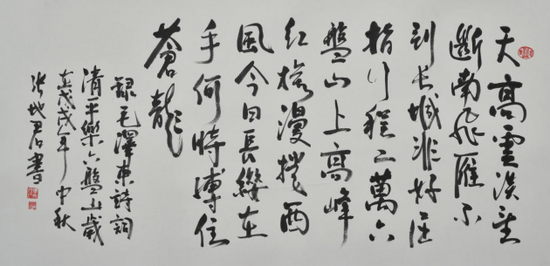 天高雲淡望
斷南飛雁不
到长城非好屈
指行程二萬六
盤山上高峰
紅旗漫捲西
風今日長纓在
手何時縛住
蒼龍
録毛澤東詩詞
清平樂六盤山歲
在戊戌年中秋
張地君書